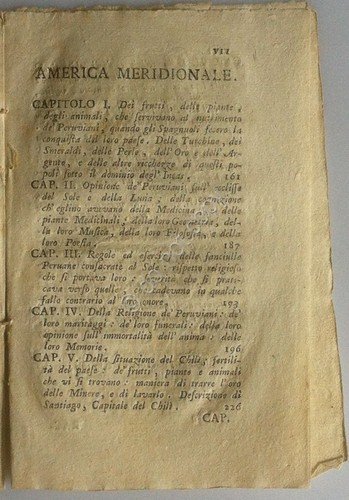 VII
AMERICA MERIDIONALE.
CAPITOLO I. Dei frutti, delle piante,
degli animali, che servivano al nutrimento
de' Peruviani, quando gli Spagnuoli fecero la
conquista del loro paese. Delle Turchine, dei
Smeraldi, delle Perle, dell' Oro e dell' Ar-
gento, e delle altre ricchezze di questi po-
poli sotto il dominio degl' Incas. 161
CAP. II. Opinione de' Peruviani sull' ecclisse
del Sole e della Luna; della cognizione
ch' eglino avevano della Medicina e delle
piante Medicinali, della loro Geometria, del-
la loro Musica, della loro Filosofia, e della
loro Poesia. 187
CAP. III. Regole ed esercizj delle fanciulle
Peruane consacrate al Sole: rispetto religioso
che si portava loro: severità che si prati-
cava verso quelle, che cadevano in qualche
fallo contrario al loro onore. 193
CAP. IV. Della Religione de' Peruviani: de'
loro maritaggi: de' loro funerali: della loro
opinione sull' immortalità dell' anima: delle
loro Memorie. 196
CAP. V. Della situazione del Chilì; fertili-
tà del paese: de' frutti, piante e animali
che vi si trovano: maniera di trarre l'oro
delle Minere, e di lavarlo. Descrizione di
Santiago, Capitale del Chilì. 226
CAP.